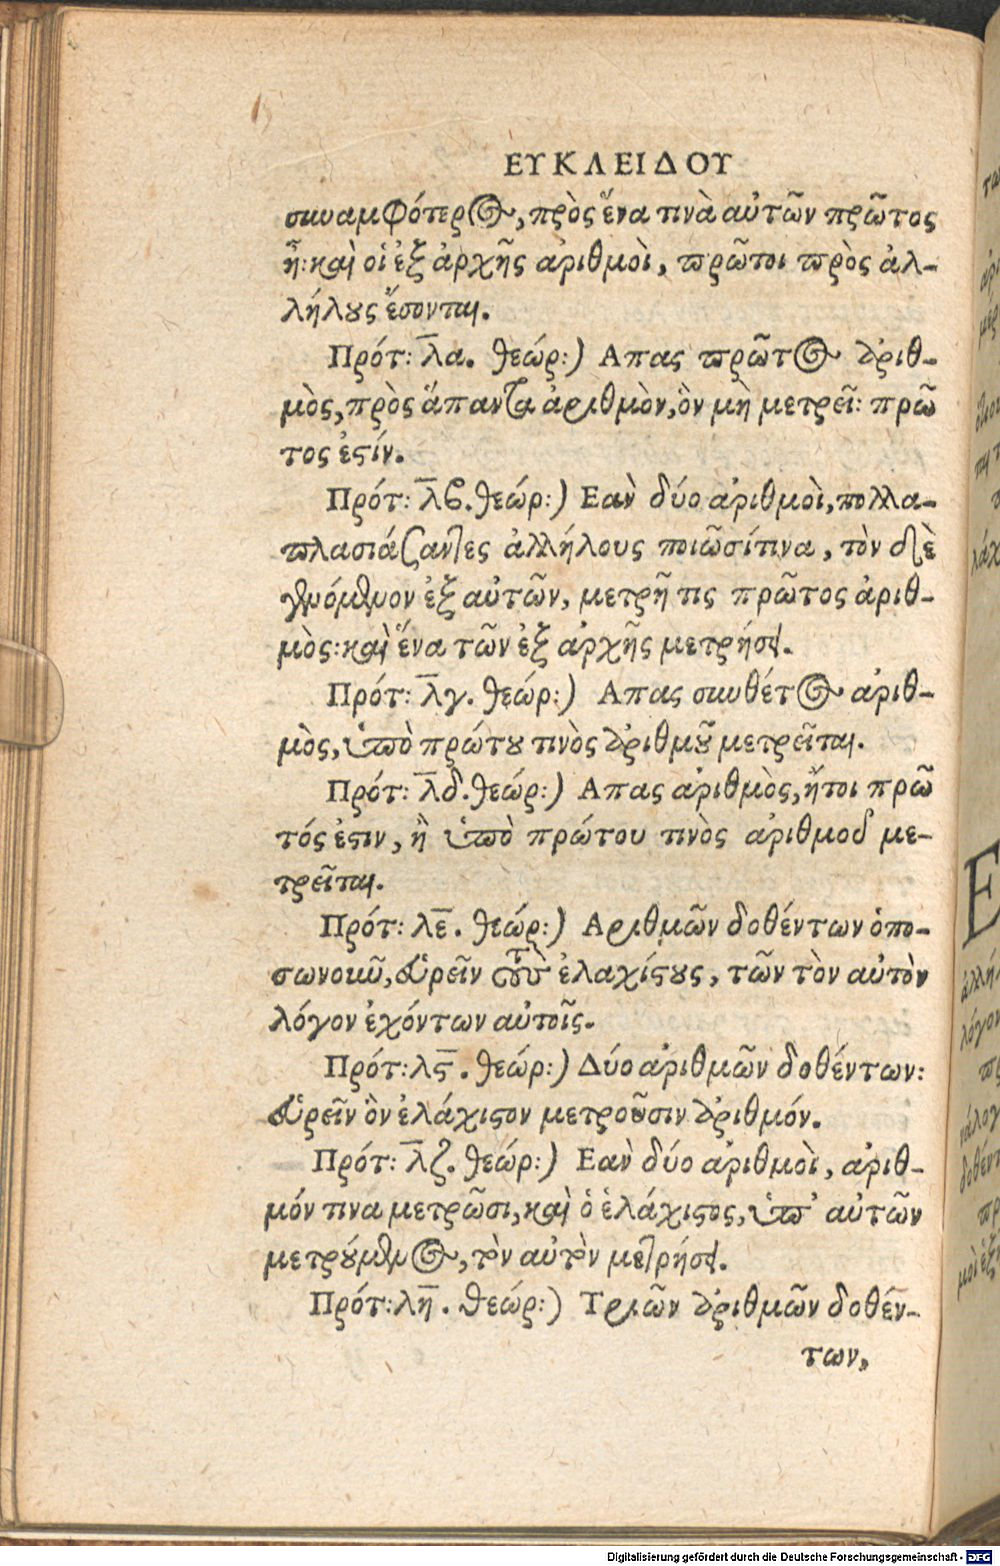 ΕΥΚΛΕΙΔΟΥ
συναμφότερος, πρὸς ἕνα τινὰ αὐτῶν πρῶτος
ἦ: καὶ οἱ ἐξ ἀρχῆς ἀριθμοὶ, πρῶτοι πρὸς ἀλ-
λήλους ἔσονται.
Πρότ: λα. θεώρ:) Απας πρῶτος ἀριθ-
μὸς, πρὸς ἅπαντα ἀριθμὸν, ὃν μὴ μετρεῖ: πρῶ
τος ἐστίν.
Πρότ: λβ. θεώρ:) Εαν δύο ἀριθμοὶ, πολλα-
πλασιάζαντες ἀλλήλους ποιῶσίτινα, τὸν δὲ
γενόμενον ἐξ αὐτῶν, μετρῆ τις πρῶτος ἀριθ-
μὸς: καὶ ἕνα τῶν ἐξ ἀρχῆς μετρήσει.
Πρότ: λγ. θεώρ:) Απας συνθέτος ἀριθ-
μὸς, ὑπὸ πρώτου τινὸς ἀριθμοῦ μετρεῖται.
Πρότ: λδ. θεώρ:) Απας ἀριθμὸς, ἤτοι πρῶ
τός ἐστιν, ἢ ὑπὸ πρώτου τινὸς ἀριθμοῦ με-
τρεῖται.
Πρότ: λε. θεώρ:) Αριθμῶν δοθέντων ὁπο-
σωνοιοῦν, εὑρεῖν τοὺς ἐλαχίστους, τῶν τὸν αὐτὸν
λόγον ἐχόντων αὐτοῖς.
Πρότ: λϛ. θεώρ:) Δύο ἀριθμῶν δοθέντων:
εὑρεῖν ὃν ἐλάχιστον μετροῦσιν ἀριθμόν.
Πρότ: λζ. θεώρ:) Εαν δύο ἀριθμοὶ, ἀριθ-
μόν τινα μετρῶσι, καὶ ὁ ἐλάχιστος, ὑπ' αὐτῶν
μετρούμενος, τὸν αὐτὸν μετρήσει.
Πρότ: λη. θεώρ:) Τριῶν ἀριθμῶν δοθέν-
των,
Digitalisierung gefördert durch die Deutsche Forschungsgemeinschaft - DFG